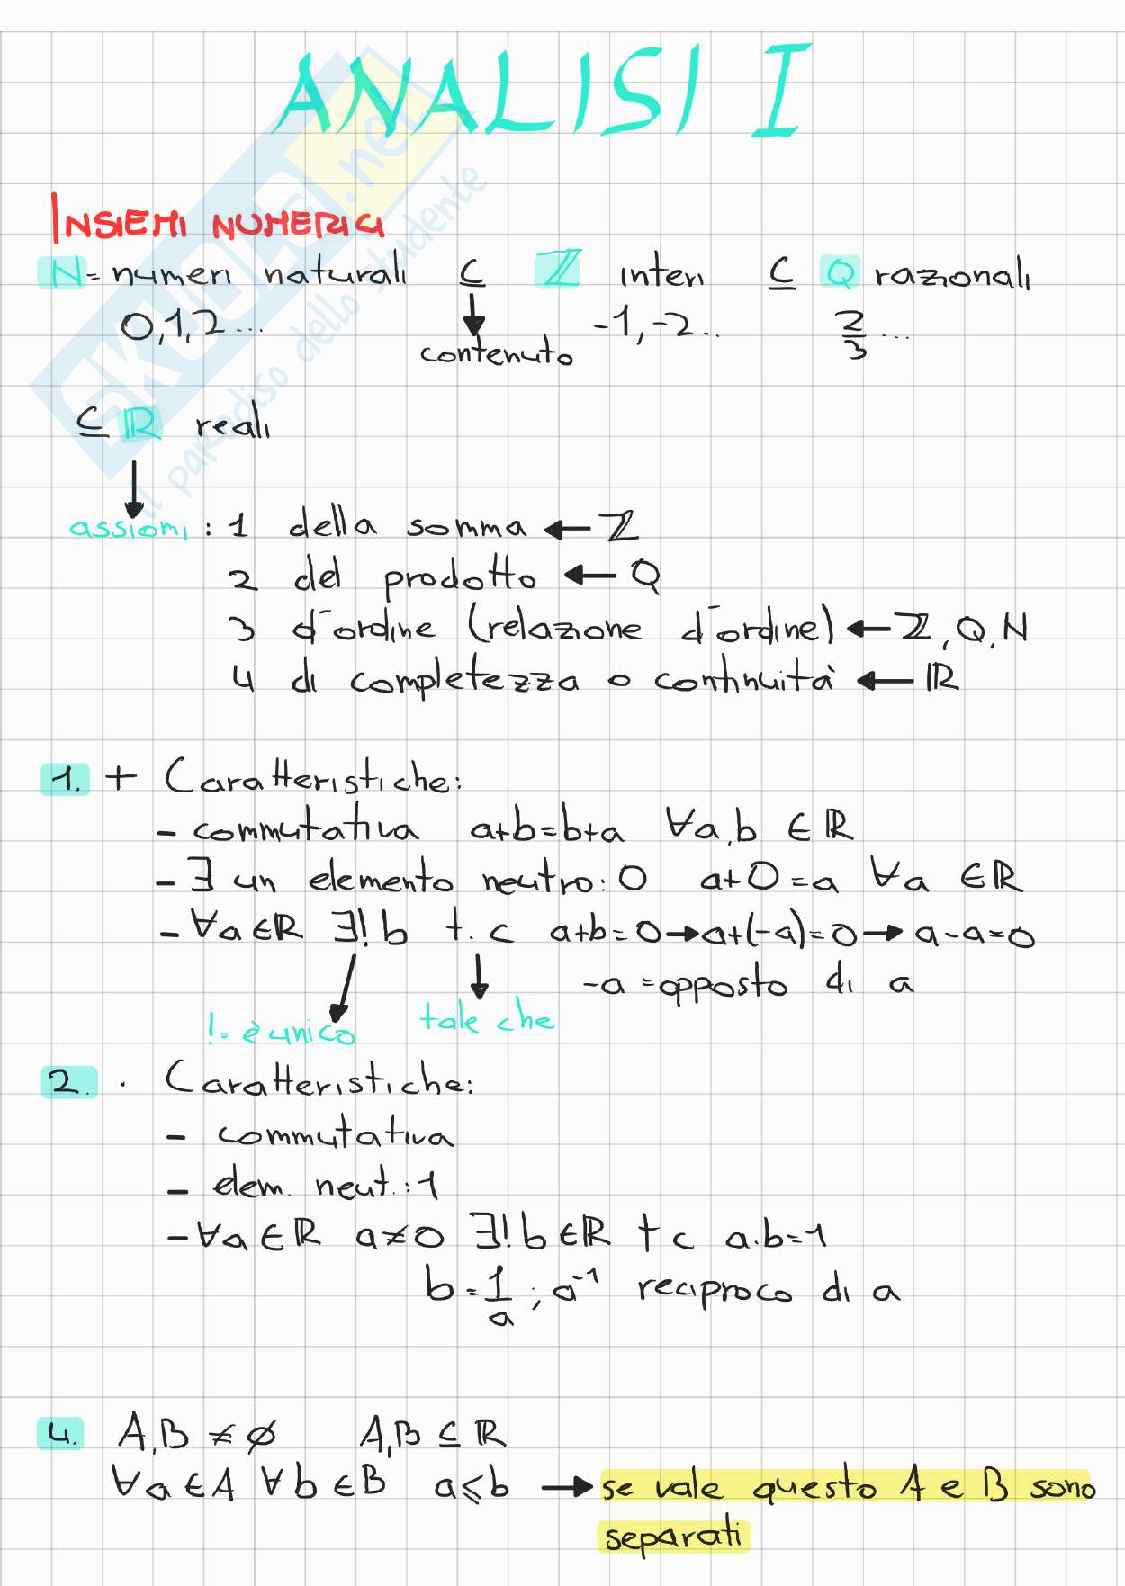 ANALISI I
INSIEMI NUMERICI
N = numeri naturali ⊆ ℤ interi ⊆ Q razionali
0,1,2... -1,-2... 2/3 ...
contenuto
⊆ ℝ reali
assiomi: 1 della somma ← ℤ
2 del prodotto ← Q
3 d'ordine (relazione d'ordine) ← ℤ, Q, N
4 di completezza o continuità ← ℝ
1. + Caratteristiche:
- commutativa a+b=b+a ∀a,b ∈ ℝ
- ∃ un elemento neutro: 0 a+0=a ∀a ∈ ℝ
- ∀a∈ℝ ∃! b t.c a+b=0 → a+(-a)=0 → a-a=0
-a = opposto di a
!= è unico tale che
2. · Caratteristiche:
- commutativa
- elem. neut.: 1
- ∀a∈ℝ a≠0 ∃! b∈ℝ t c a·b=1
b=1/a ; a⁻¹ reciproco di a
4. A,B ≠ ∅ A,B ⊆ ℝ
∀a∈A ∀b∈B a≤b → se vale questo A e B sono
separati
skuola.net
il paradiso dello studente